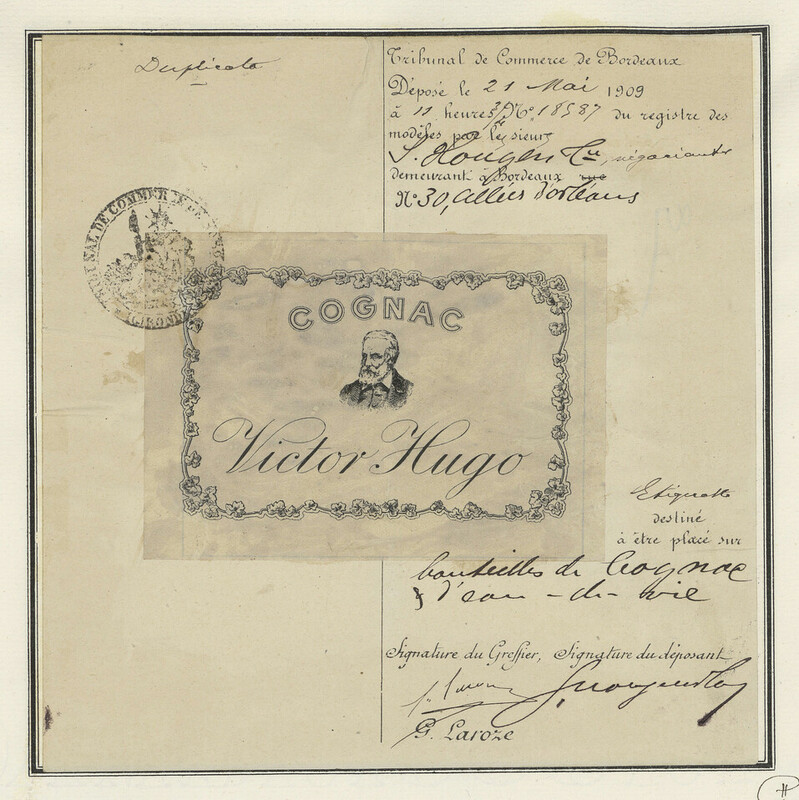 Duplicata
Tribunal de Commerce de Bordeaux
Déposé le 21 Mai 1909
à 11 heures N° 18587 du registre des
modèles par les sieurs
négociants
demeurant à Bordeaux rue
N° 30, allées d'orléans
TRIBUNAL DE COMMERCE DE
(GIRONDE)
COGNAC
Victor Hugo
Etiquette
destiné
à être placé sur
bouteilles de Cognac
& d'eau-de-vie
Signature du Greffier, Signature du déposant
G. Laroze
H